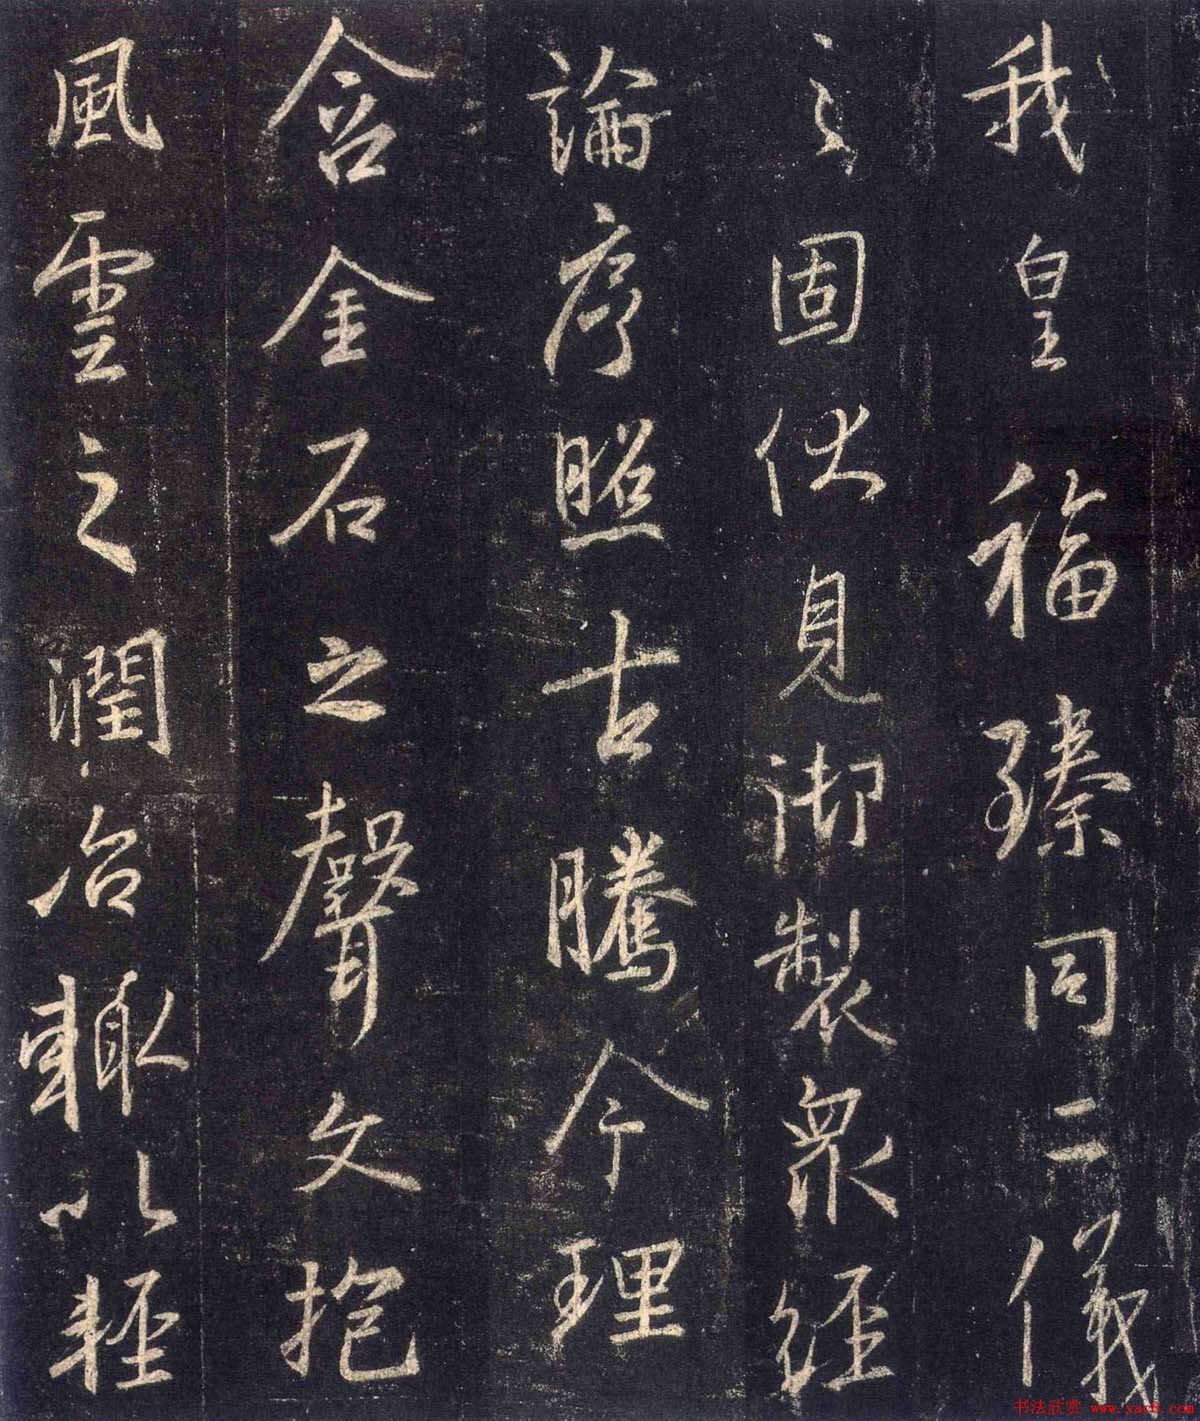 我皇福臻同二儀
之固伏見御製衆經
論序照古騰今理
含金石之聲文抱
風雲之潤治輙以輕
书法欣赏 www.yac8.com